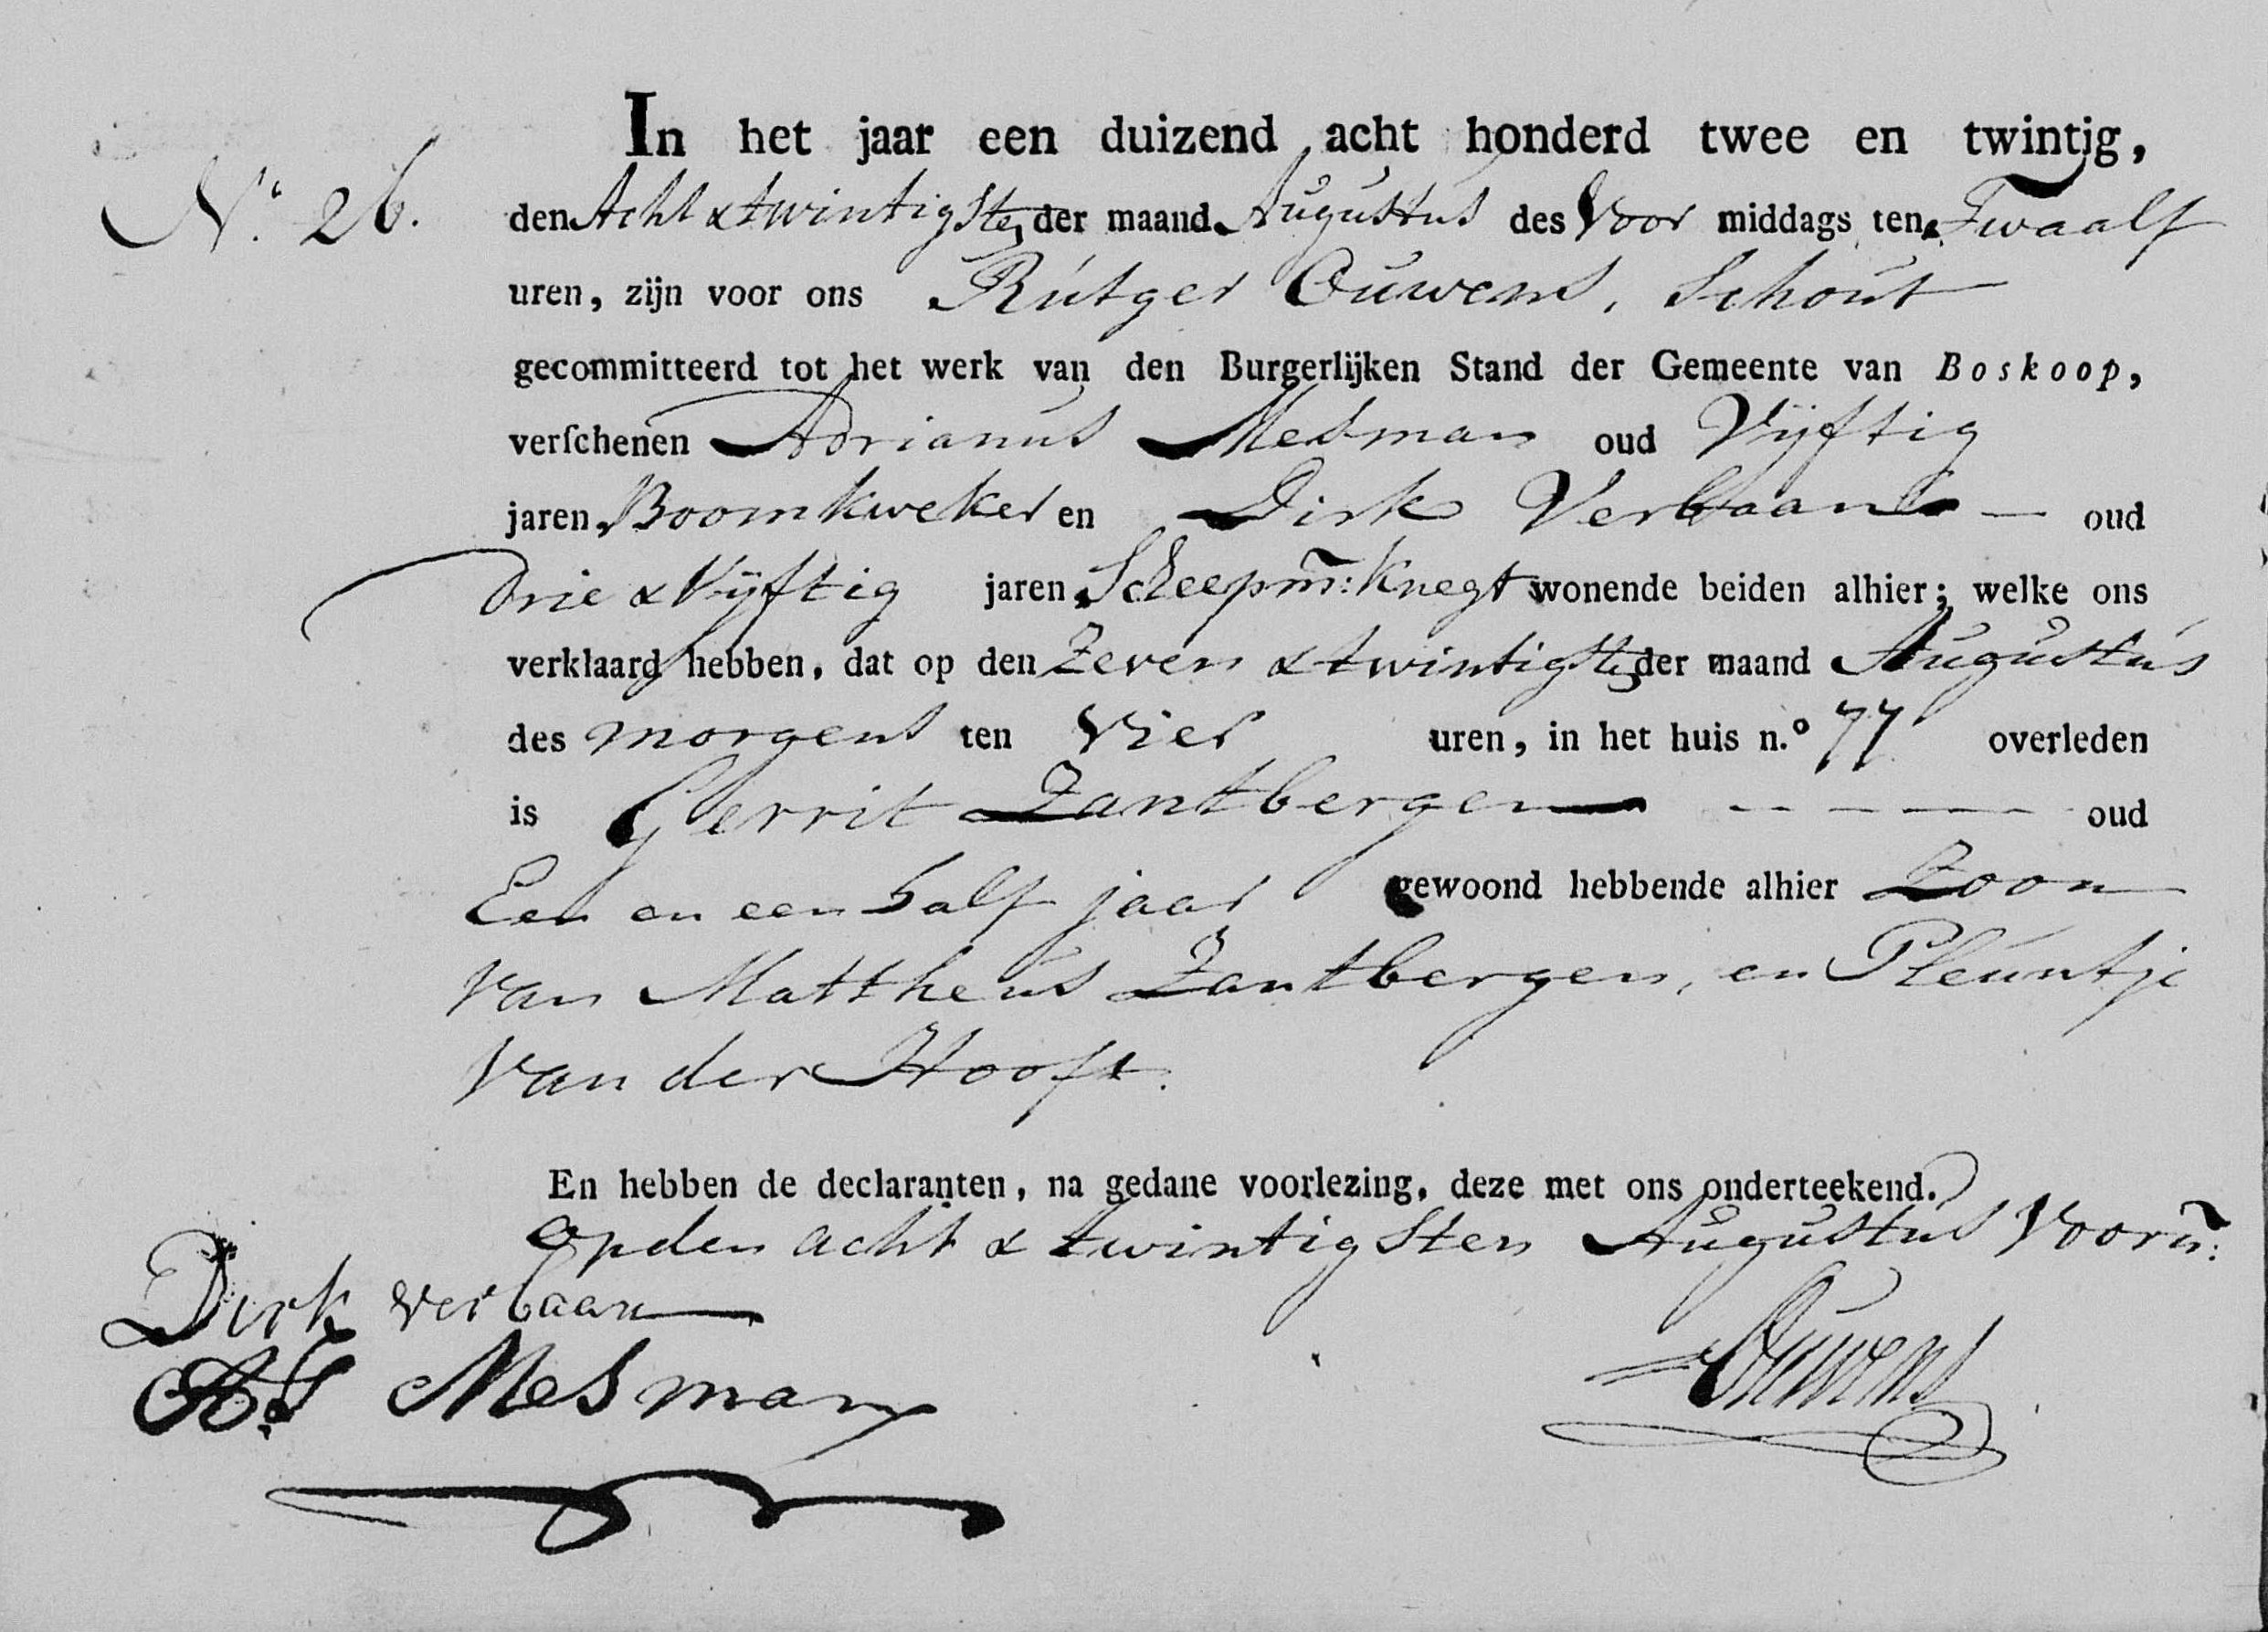 In het jaar een duizend acht honderd twee en twintig,
N.° 26. den Acht & twintigsten der maand Augustus des Voor middags ten Twaalf
uren, zijn voor ons Rutger Ouwens, Schout
gecommitteerd tot het werk van den Burgerlijken Stand der Gemeente van Boskoop,
verſchenen Adrianus Mesman oud Vijftig
jaren, Boomkweker en Dirk Verbaan — oud
drie & Vijftig jaren, Scheepm̃: Knegt wonende beiden alhier; welke ons
verklaard hebben, dat op den Zeven & twintigsten der maand Augustus
des morgens ten Vier uren, in het huis n.° 77 overleden
is Gerrit Zantbergen — — — — oud
Een en een half jaar gewoond hebbende alhier Zoon
van Mattheus Zantbergen, en Pleuntje
van der Hooft.
En hebben de declaranten, na gedane voorlezing, deze met ons onderteekend.
op den acht & twintigsten Augustus Voorñ:
Dirk verbaan
As Mesman
Ouwens